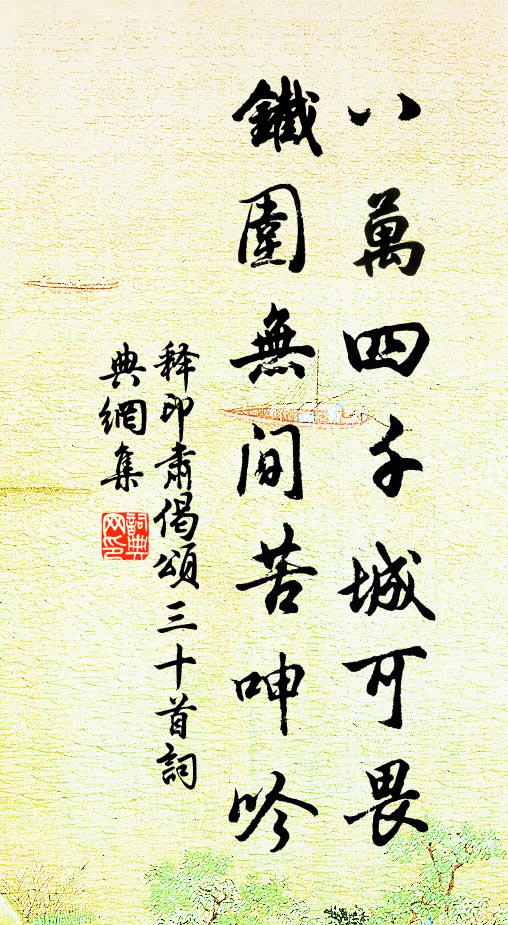 八萬四千城可畏
鐵圍無間苦呻吟
释印肃偈頌三十首詞
典網集
詞典網印